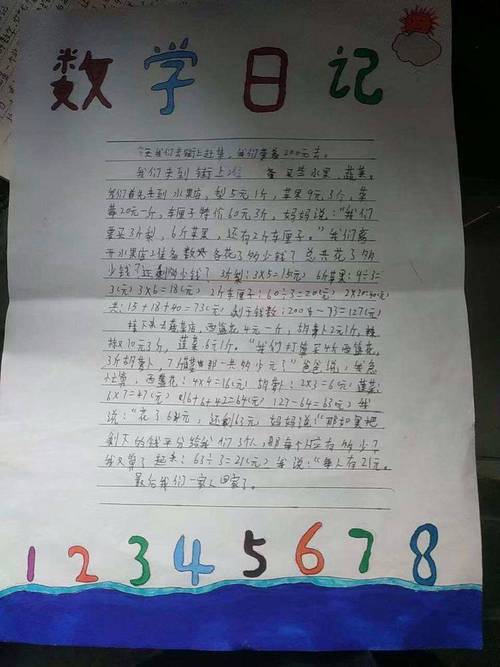 数学日记
今天我们去街上赶集,我们带着200元去。
我们来到街上准备买些水果,蔬菜。
我们首先来到水果店,梨5元1斤,苹果9元3个,草
莓20元一斤,车厘子特价60元3斤,妈妈说:“我们
要买3斤梨,6斤苹果,还有2斤车厘子。”我们离
开水果店准备数数各花了多少钱?总共花了多
少钱?还剩多少钱?3斤梨:3×5=15(元) 6斤苹果:9÷3=
3(元) 3×6=18(元) 2斤车厘子:60÷3=20(元) 2×20=40(元)
共:15+18+40=73(元) 剩下钱数:200-73=127(元)
接下来去蔬菜店,西兰花4元一斤,胡萝卜2元1斤,
10元3斤,菠菜6元1斤。“我们打算买4斤西兰花,
3斤胡萝卜,7斤菠菜那一共多少元?”爸爸说,我急
忙算,西兰花:4×4=16(元) 胡萝卜:2×3=6(元) 菠菜:
6×7=42(元) 16+6+42=64(元) 127-64=63(元) 我
说:“花了64元,还剩63元 妈妈说:“那如果把
剩下的钱平分给我们3个人,那每个人应有多少?
我又算了起来:63÷3=21(元) 我说:“每人有21元。
最后我们一家人回家了。
1 2 3 4 5 6 7 8